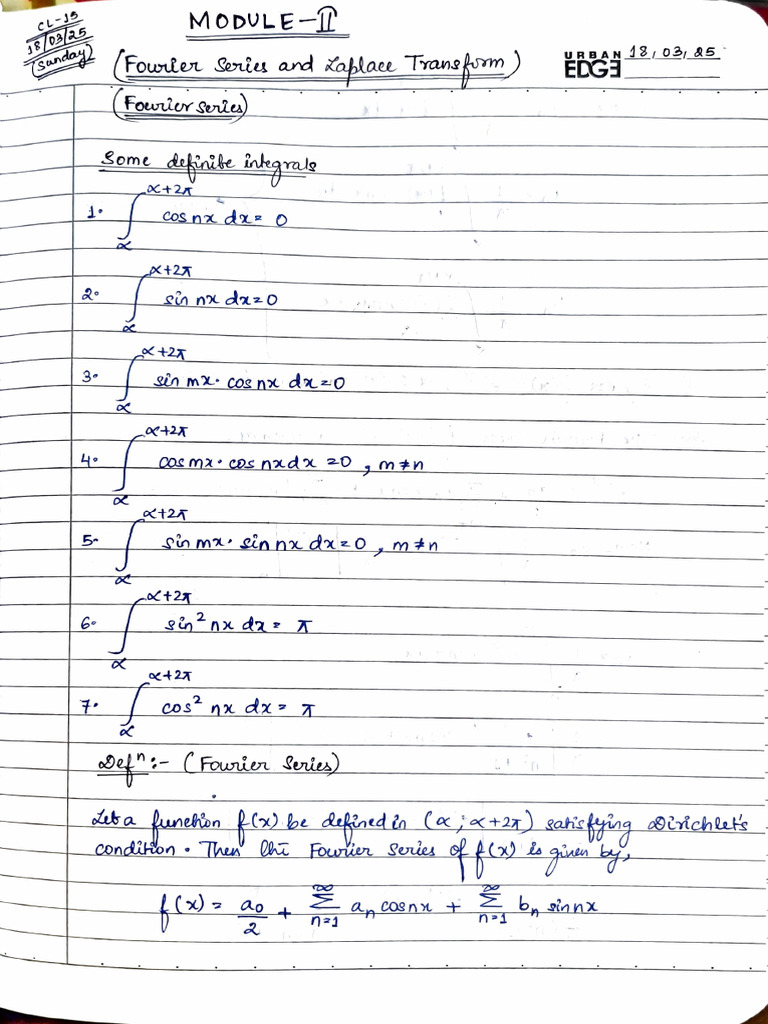 CL-15
18/03/25
(Sunday)
MODULE-II
(Fourier Series and Laplace Transform)
URBAN EDGE 18, 03, 25
(Fourier series)
Some definite integrals
1. ∫_α^{α+2π} cos nx dx = 0
2. ∫_α^{α+2π} sin nx dx = 0
3. ∫_α^{α+2π} sin mx · cos nx dx = 0
4. ∫_α^{α+2π} cos mx · cos nx dx = 0, m≠n
5. ∫_α^{α+2π} sin mx · sin nx dx = 0, m≠n
6. ∫_α^{α+2π} sin² nx dx = π
7. ∫_α^{α+2π} cos² nx dx = π
Defⁿ:- (Fourier Series)
Let a function f(x) be defined in (α ; α+2π) satisfying Dirichlet's
condition. Then the Fourier Series of f(x) is given by,
f(x) = a₀/2 + ∑_{n=1}^{∞} aₙ cos nx + ∑_{n=1}^{∞} bₙ sin nx